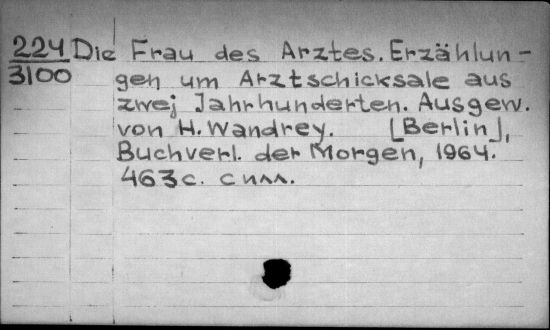 224 Die Frau des Arztes. Erzählun-
3100 gen um Arztschicksale aus
zwej Jahrhunderten. Ausgew.
von H. Wandrey. [Berlin],
Buchverl. der Morgen, 1964.
463 с. с илл.